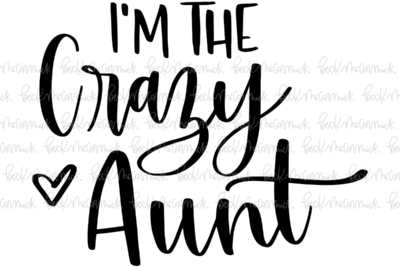 I'M THE
Crazy
Aunt